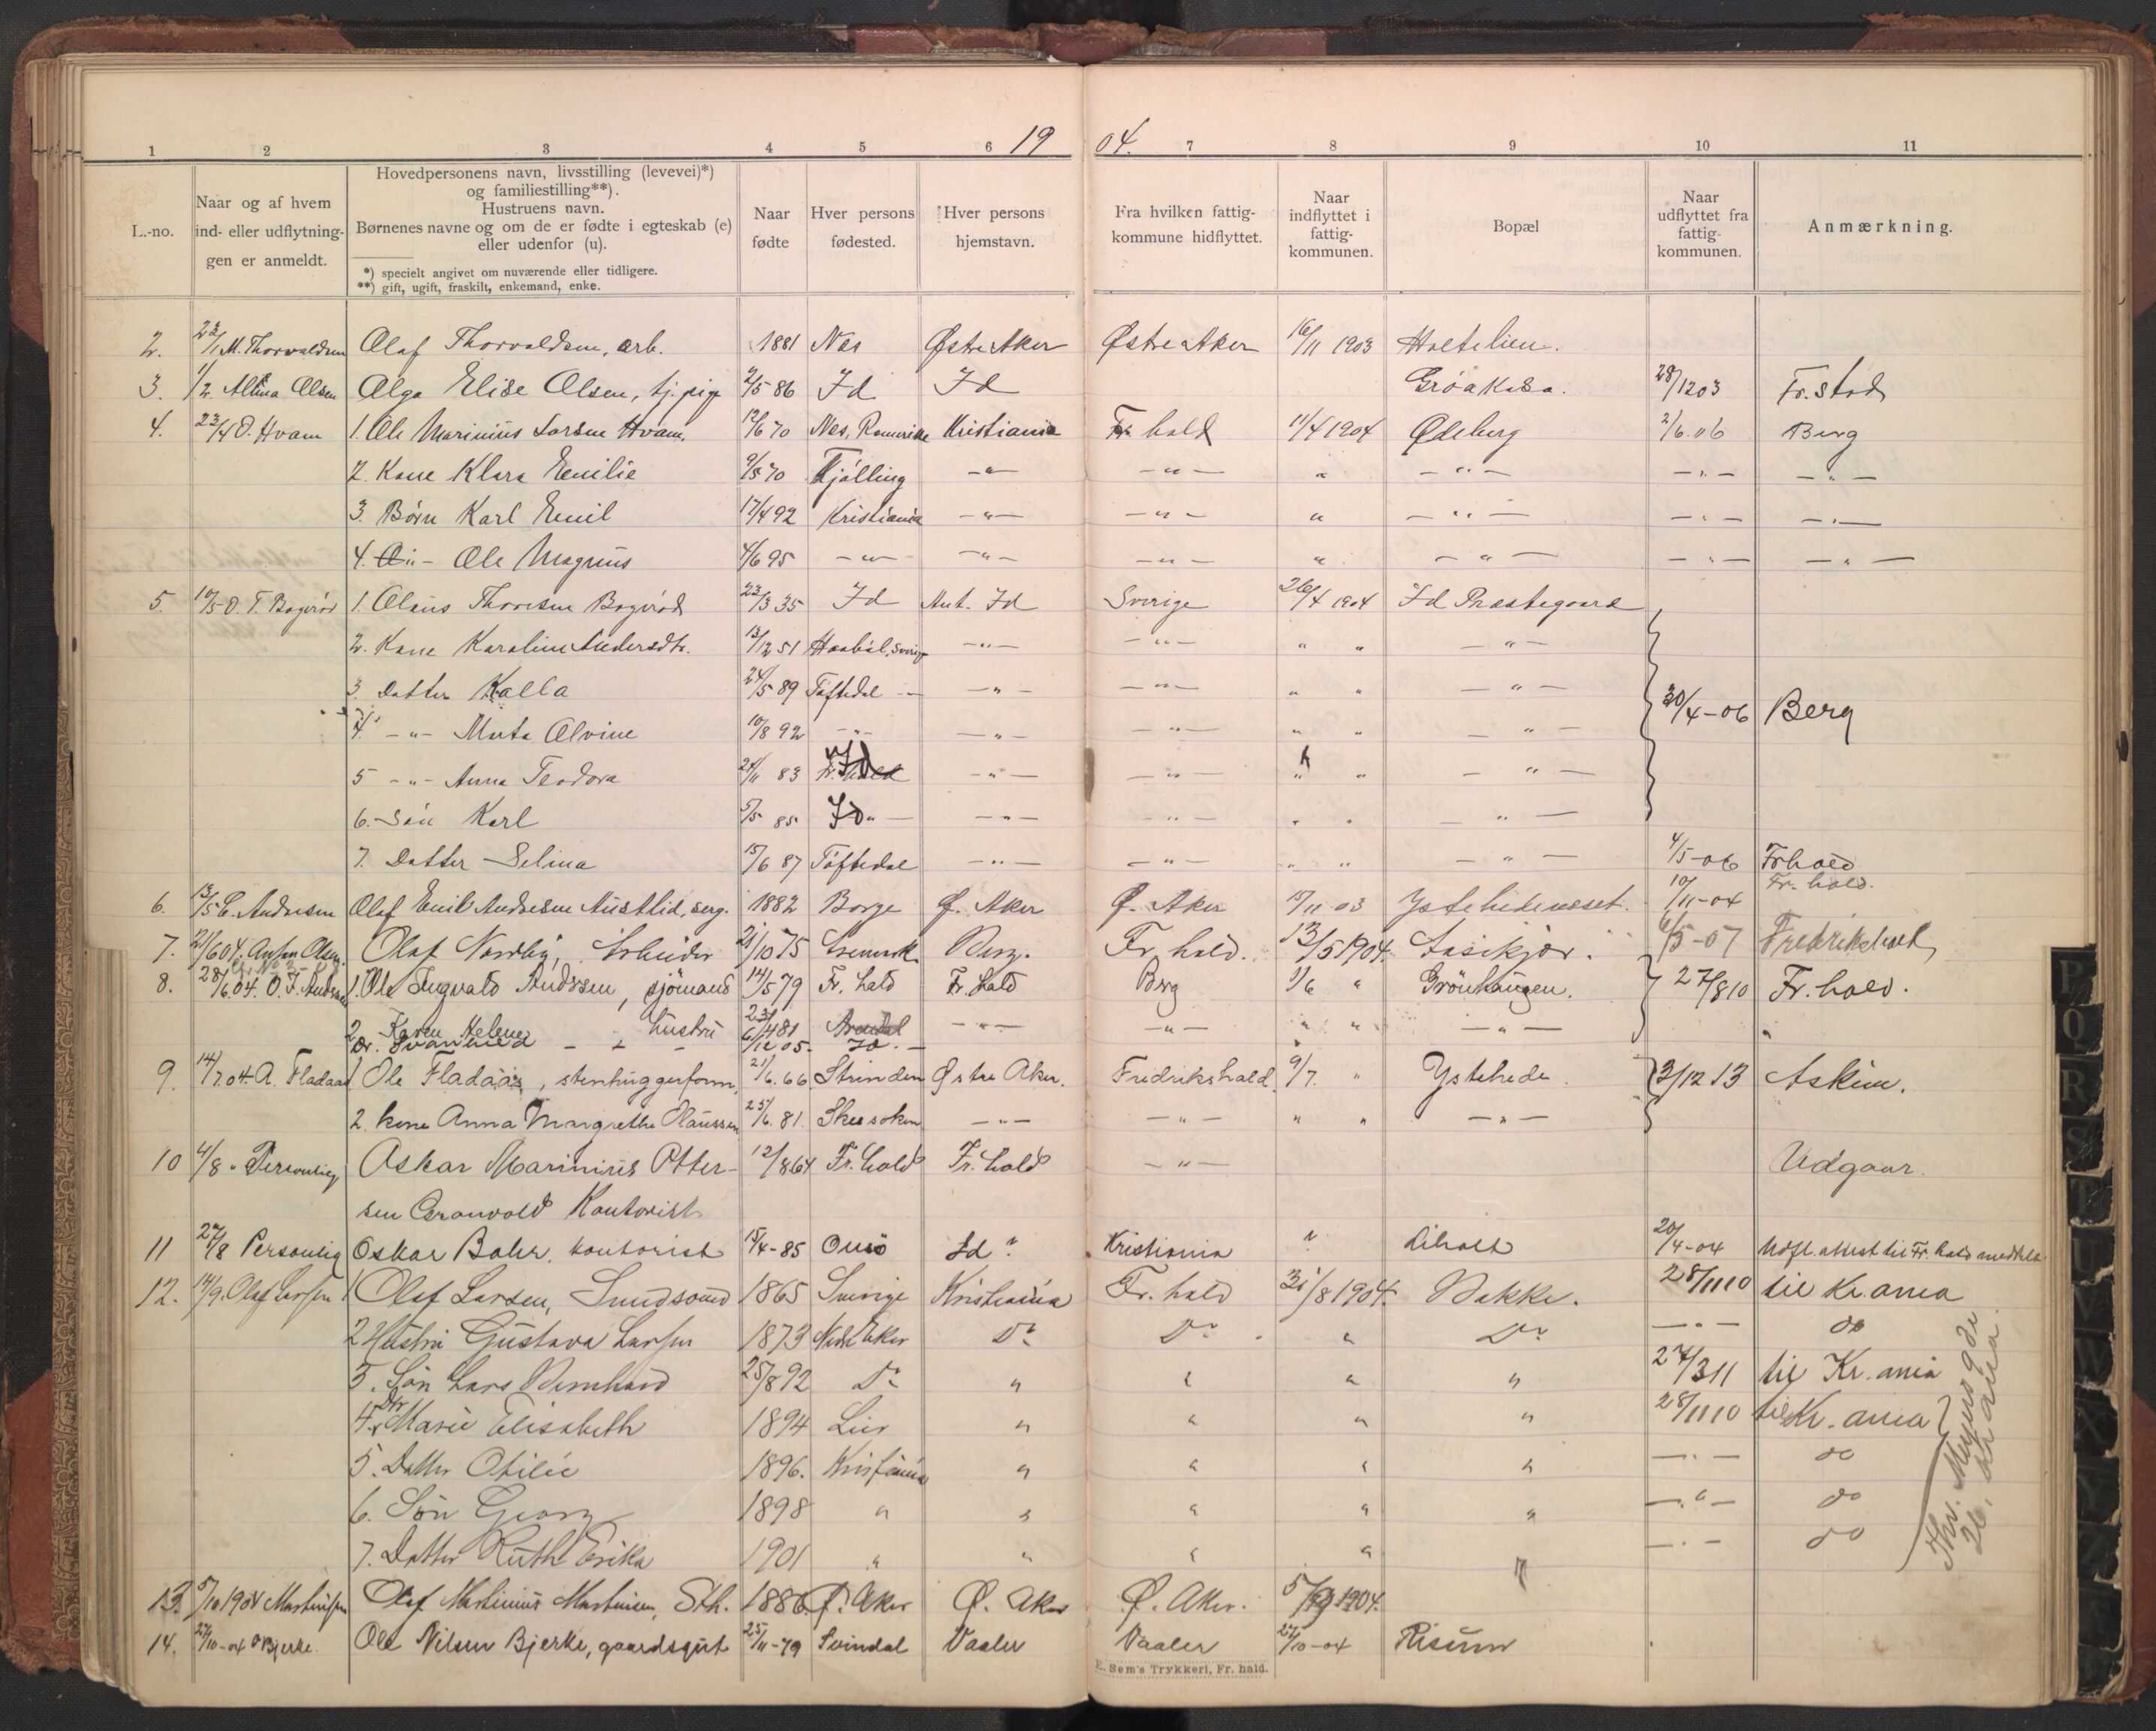 19 04.
1 2 3 4 5 6 7 8 9 10 11
L.-no.
Naar og af hvem
ind- eller udflytning-
gen er anmeldt.
Hovedpersonens navn, livsstilling (levevei)*)
og familiestilling**).
Hustruens navn.
Børnenes navne og om de er fødte i egteskab (e)
eller udenfor (u).
*) specielt angivet om nuværende eller tidligere.
**) gift, ugift, fraskilt, enkemand, enke.
Naar
fødte
Hver persons
fødested.
Hver persons
hjemstavn.
Fra hvilken fattig-
kommune hidflyttet.
Naar
indflyttet i
fattig-
kommunen.
Bopæl
Naar
udflyttet fra
fattig-
kommunen.
Anmærkning.
2. 23/1 M. Thorvaldsen Olaf Thorvaldsen, arb. 1881 Nes Østre Aker Østre Aker 16/11 1903 Holtelien.
3. 1/2 Olsen Olga Elise Olsen, tj. pige 2/5 86 Id Id 28/12 03 Fr.stad
4. 23/4 O. Hvam 1. Ole Marinius Larsen Hvam, 12/6 70 Nes, Romerike Kristiania Fr. hald 11/4 1904 Ødeberg 2/6.06 Berg
2. Kone Klara Emilie 9/5 70 Tjølling -"- -"- " -"- -"- -"-
3. Børn Karl Emil 17/4 92 Kristiania -"- -"- " -"- -"- -"-
4. -"- Ole Magnus 4/6 95 -"- -"- -"- " -"- -"- -"-
5. 10/5 O. T. Bøgerød 1. Olaus Thoresen Bøgerød 23/3 35 Id Ant. Id Sverige 26/4 1904 Id Præstegaard
2. Kone Karoline Andersdtr. 13/12 51 Haabøl, Sverige -"- -"- " " -"-
3. Datter Kalla 24/5 89 Tøftedal -"- -"- -"- " " -"- 30/4-06 Berg
4. -"- Marta Alvine 10/8 92 -"- -"- -"- " " -"-
5 -"- Anna Teodora 24/11 83 Id -"- -"- " " -"-
6. Søn Karl 5/5 85 Id -"- -"- " " -"-
7. Datter Selina 15/6 87 Tøftedal -"- -"- " " -"- 4/5-06 Frhald
6. 13/5 E. Andresen Olaf Emil Andresen Austlid, serg. 1882 Borge Ø. Aker Ø. Aker 15/11 03 Ystehedeneset. 10/11-04 Fr. hald.
7. 21/6 04. Anton Olsen Olaf Nordby, Arbeider 21/10 75 Aremark Berg. Fr. hald. 13/5 1904. 6/5-07 Fredrikshald
8. 28/6.04. O. I. Andersen 1. Ole Ingvald Anderssen, sjømand 14/5 79 Fr. hald Fr. hald Berg 1/6 " Grønhaugen. 27/8 10 Fr. hald.
2. Karen Helene - hustru 23/4 81 -"- -"- " " -"-
Dr. Svanhild - " - 6/12 05 Id. -
9. 14/7.04. A. Fladaas 1 Ole Fladaas, stenhuggerform. 21/6. 66 Strinden Østre Aker. Fredrikshald. 9/7. " Ystehede. 3/12 13 Askim.
2. kone Anna Margrethe Olaussen 25/6. 81. Skeesoken -"- -"- " " -"-
10 4/8 " Personlig Oskar Marinius Otter- 12/8 64 Fr. hald Fr. hald -"- Udgaar.
sen Granvold Kontorist
11 27/8 Personlig Oskar Bahr. kontorist 15/4-85 Onsø Id ? Kristiania ? Liholt 20/4-04 Udfl. attest til Fr. hald meddelt.
12. 14/9. Olaf Larsen 1 Olaf Larsen, 1865 Sverige Kristiania Fr. hald 31/8 1904. Bakke. 28/11 10 til Kr. ania
2 Hustru Gustava Larsen 1873 Nedre Eker Do Do " Do -"- do
3. Søn Lars Bernhard 25/8 92 Do " " " " 24/3 11 til Kr. ania
4. Dtr Marie Elisabeth 1894 Lier " " " " 28/11 10 til Kr. ania
5. Datter Otilie 1896. Kristiania " " " " -"- do
6. Søn Georg 1898 " " " " " -"- do
7. Datter Ruth Erika 1901 " " " " " -"- do
Thv. Meyers gde
26. Kr. ania
13. 5/10 1904 Martinsen Olaf Martinius Martinsen, Sth. 1886 Ø. Aker Ø. Aker Ø. Aker. 5/9 1904.
14. 27/10-04 O Bjerke. Ole Nilsen Bjerke, gaardsgut 25/11-79 Svindal Vaaler Vaaler 27/10-04 Risum
E. Sem's Trykkeri, Fr. hald.
P
Q
R
S
T
U
V
W
X
Y
Z